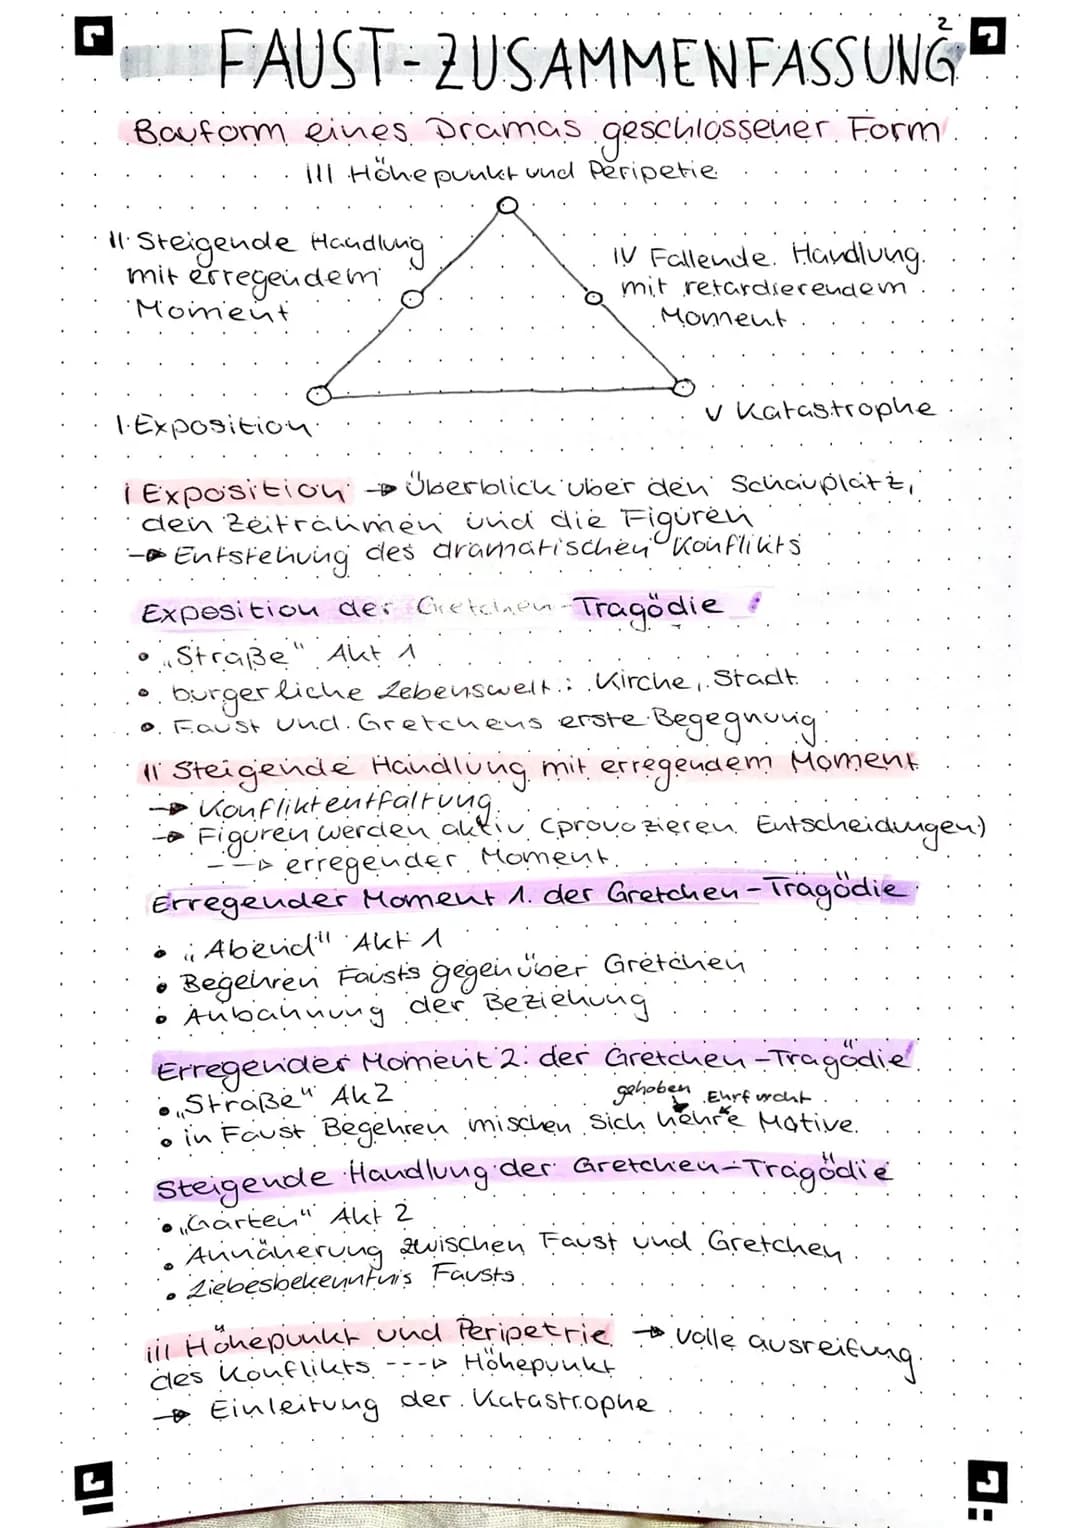 FAUST-ZUSAMMENFASSUNG 2
Bauform eines Dramas geschlossener Form
III Höhepunkt und Peripetie
II Steigende Handlung
mit erregendem
Moment
IV Fallende Handlung
mit retardierendem
Moment
I Exposition
V Katastrophe
I Exposition → Überblick über den Schauplatz,
den Zeitrahmen und die Figuren
→ Entstehung des dramatischen Konflikts
Exposition der Gretchen-Tragödie :
• „Straße" Akt 1
• bürgerliche Lebenswelt: Kirche, Stadt
• Faust und Gretchens erste Begegnung
II Steigende Handlung mit erregendem Moment
→ Konfliktentfaltung
→ Figuren werden aktiv (provozieren Entscheidungen)
--→ erregender Moment
Erregender Moment 1. der Gretchen-Tragödie
• „Abend" Akt 1
• Begehren Fausts gegenüber Gretchen
• Anbahnung der Beziehung
Erregender Moment 2. der Gretchen-Tragödie
• „Straße" Ak2
gehoben Ehrfurcht
• in Faust Begehren mischen sich hehre Motive
Steigende Handlung der Gretchen-Tragödie
• „Garten" Akt 2
• Annäherung zwischen Faust und Gretchen
• Liebesbekenntnis Fausts
III Höhepunkt und Peripetrie → volle ausreifung
des Konflikts ---→ Höhepunkt
→ Einleitung der Katastrophe